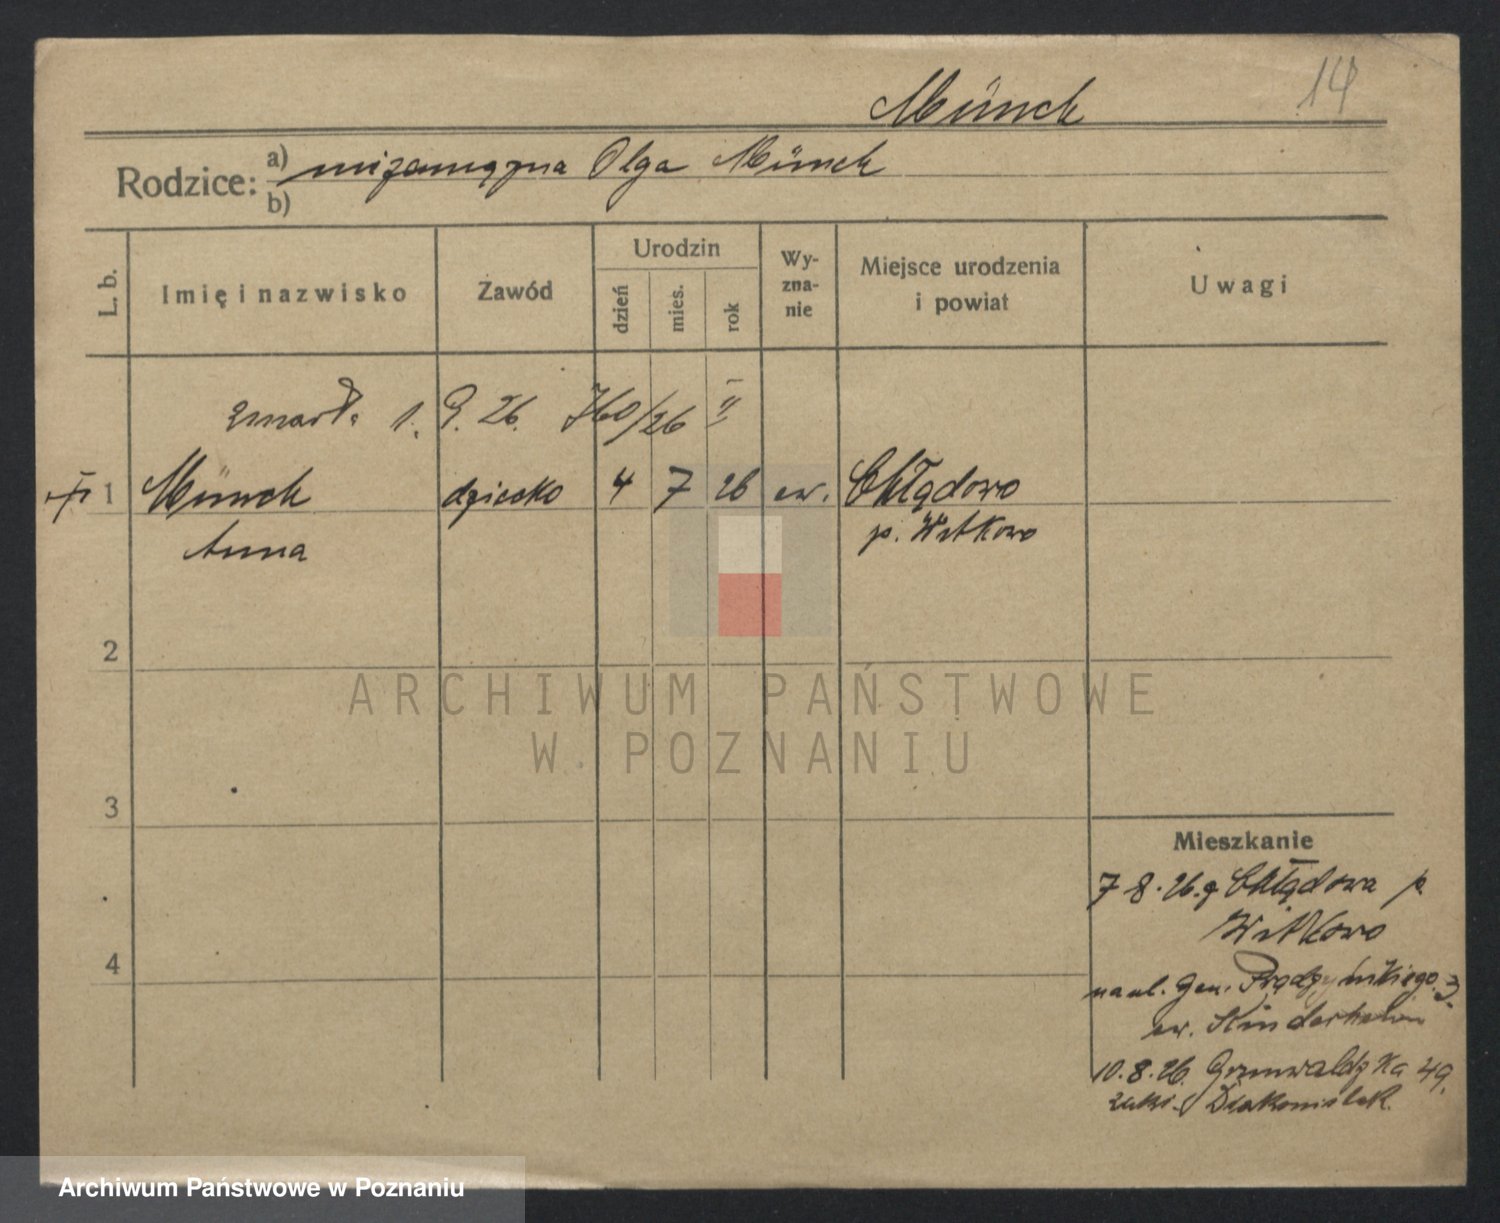 14
Münch
Rodzice: a) niezamężna Olga Münch
b)
L. b.
Imię i nazwisko
Zawód
Urodzin
dzień
mies.
rok
Wy-
zna-
nie
Miejsce urodzenia
i powiat
Uwagi
zmarła 1. 9. 26. 760/26 II
1 Münch dziecko 4 7 26 ew. Chłądowo
Anna p. Witkowo
2
3
4
Mieszkanie
7 8. 26. z Chłądowa p.
Witkowo
na ul. Gen. Prądzyńskiego 3
ew. Kinderheim
10. 8. 26. Grunwaldzka 49.
ARCHIWUM PAŃSTWOWE
W POZNANIU
Archiwum Państwowe w Poznaniu